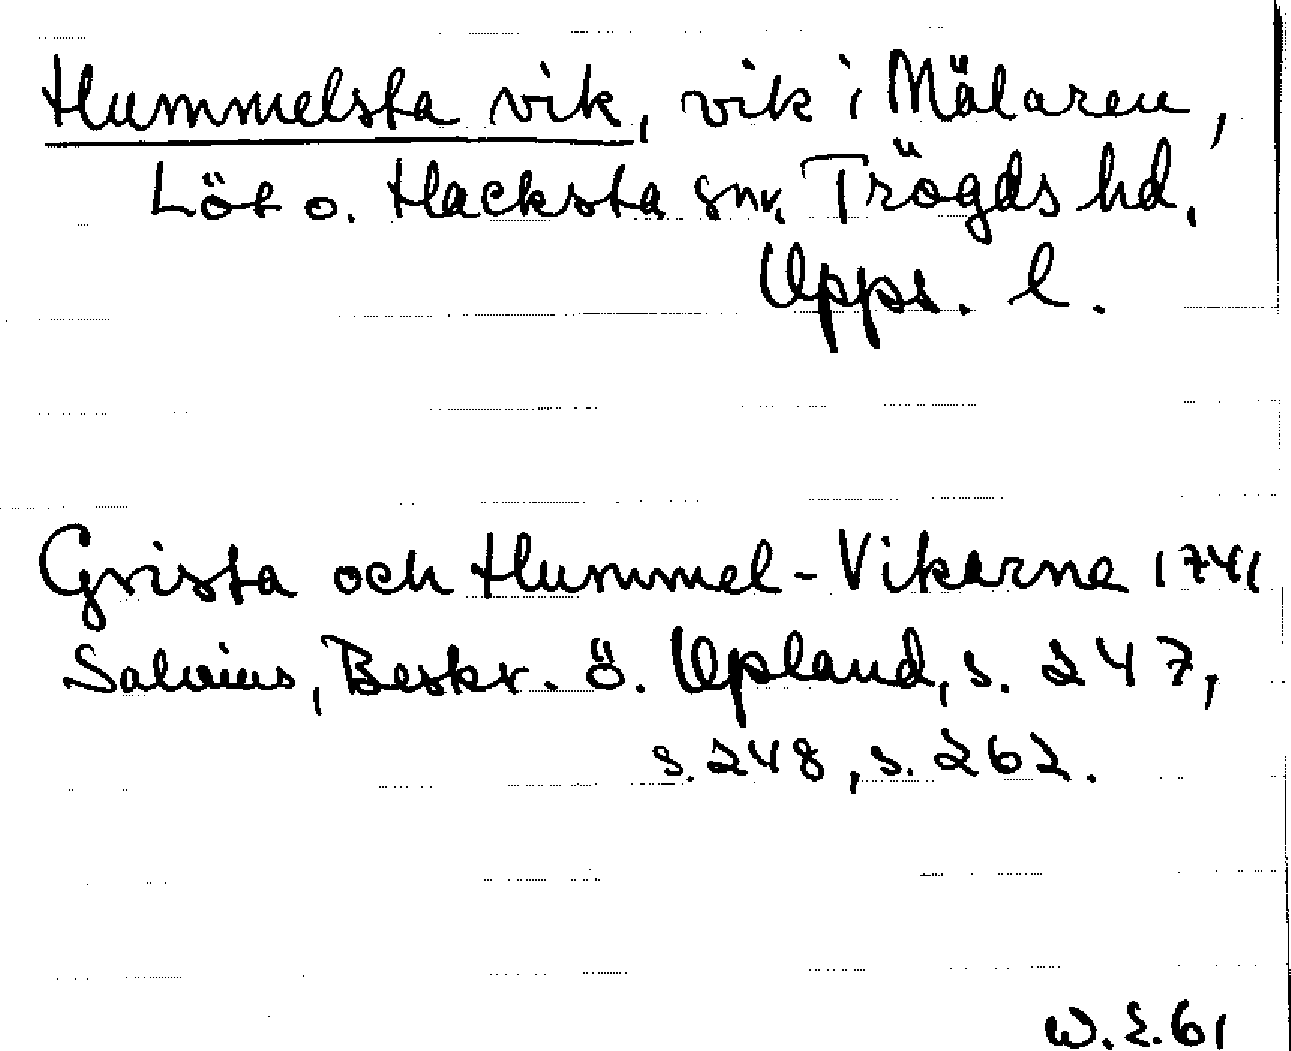 Hummelsta vik, vik i Mälaren,
Löt o. Hacksta snr. Trögds hd.
Upps. l.
Grista och Hummel-Vikarne 1741
Salvius, Beskr. ö. Upland, s. 247,
s. 248, s. 262.
W.E. 61